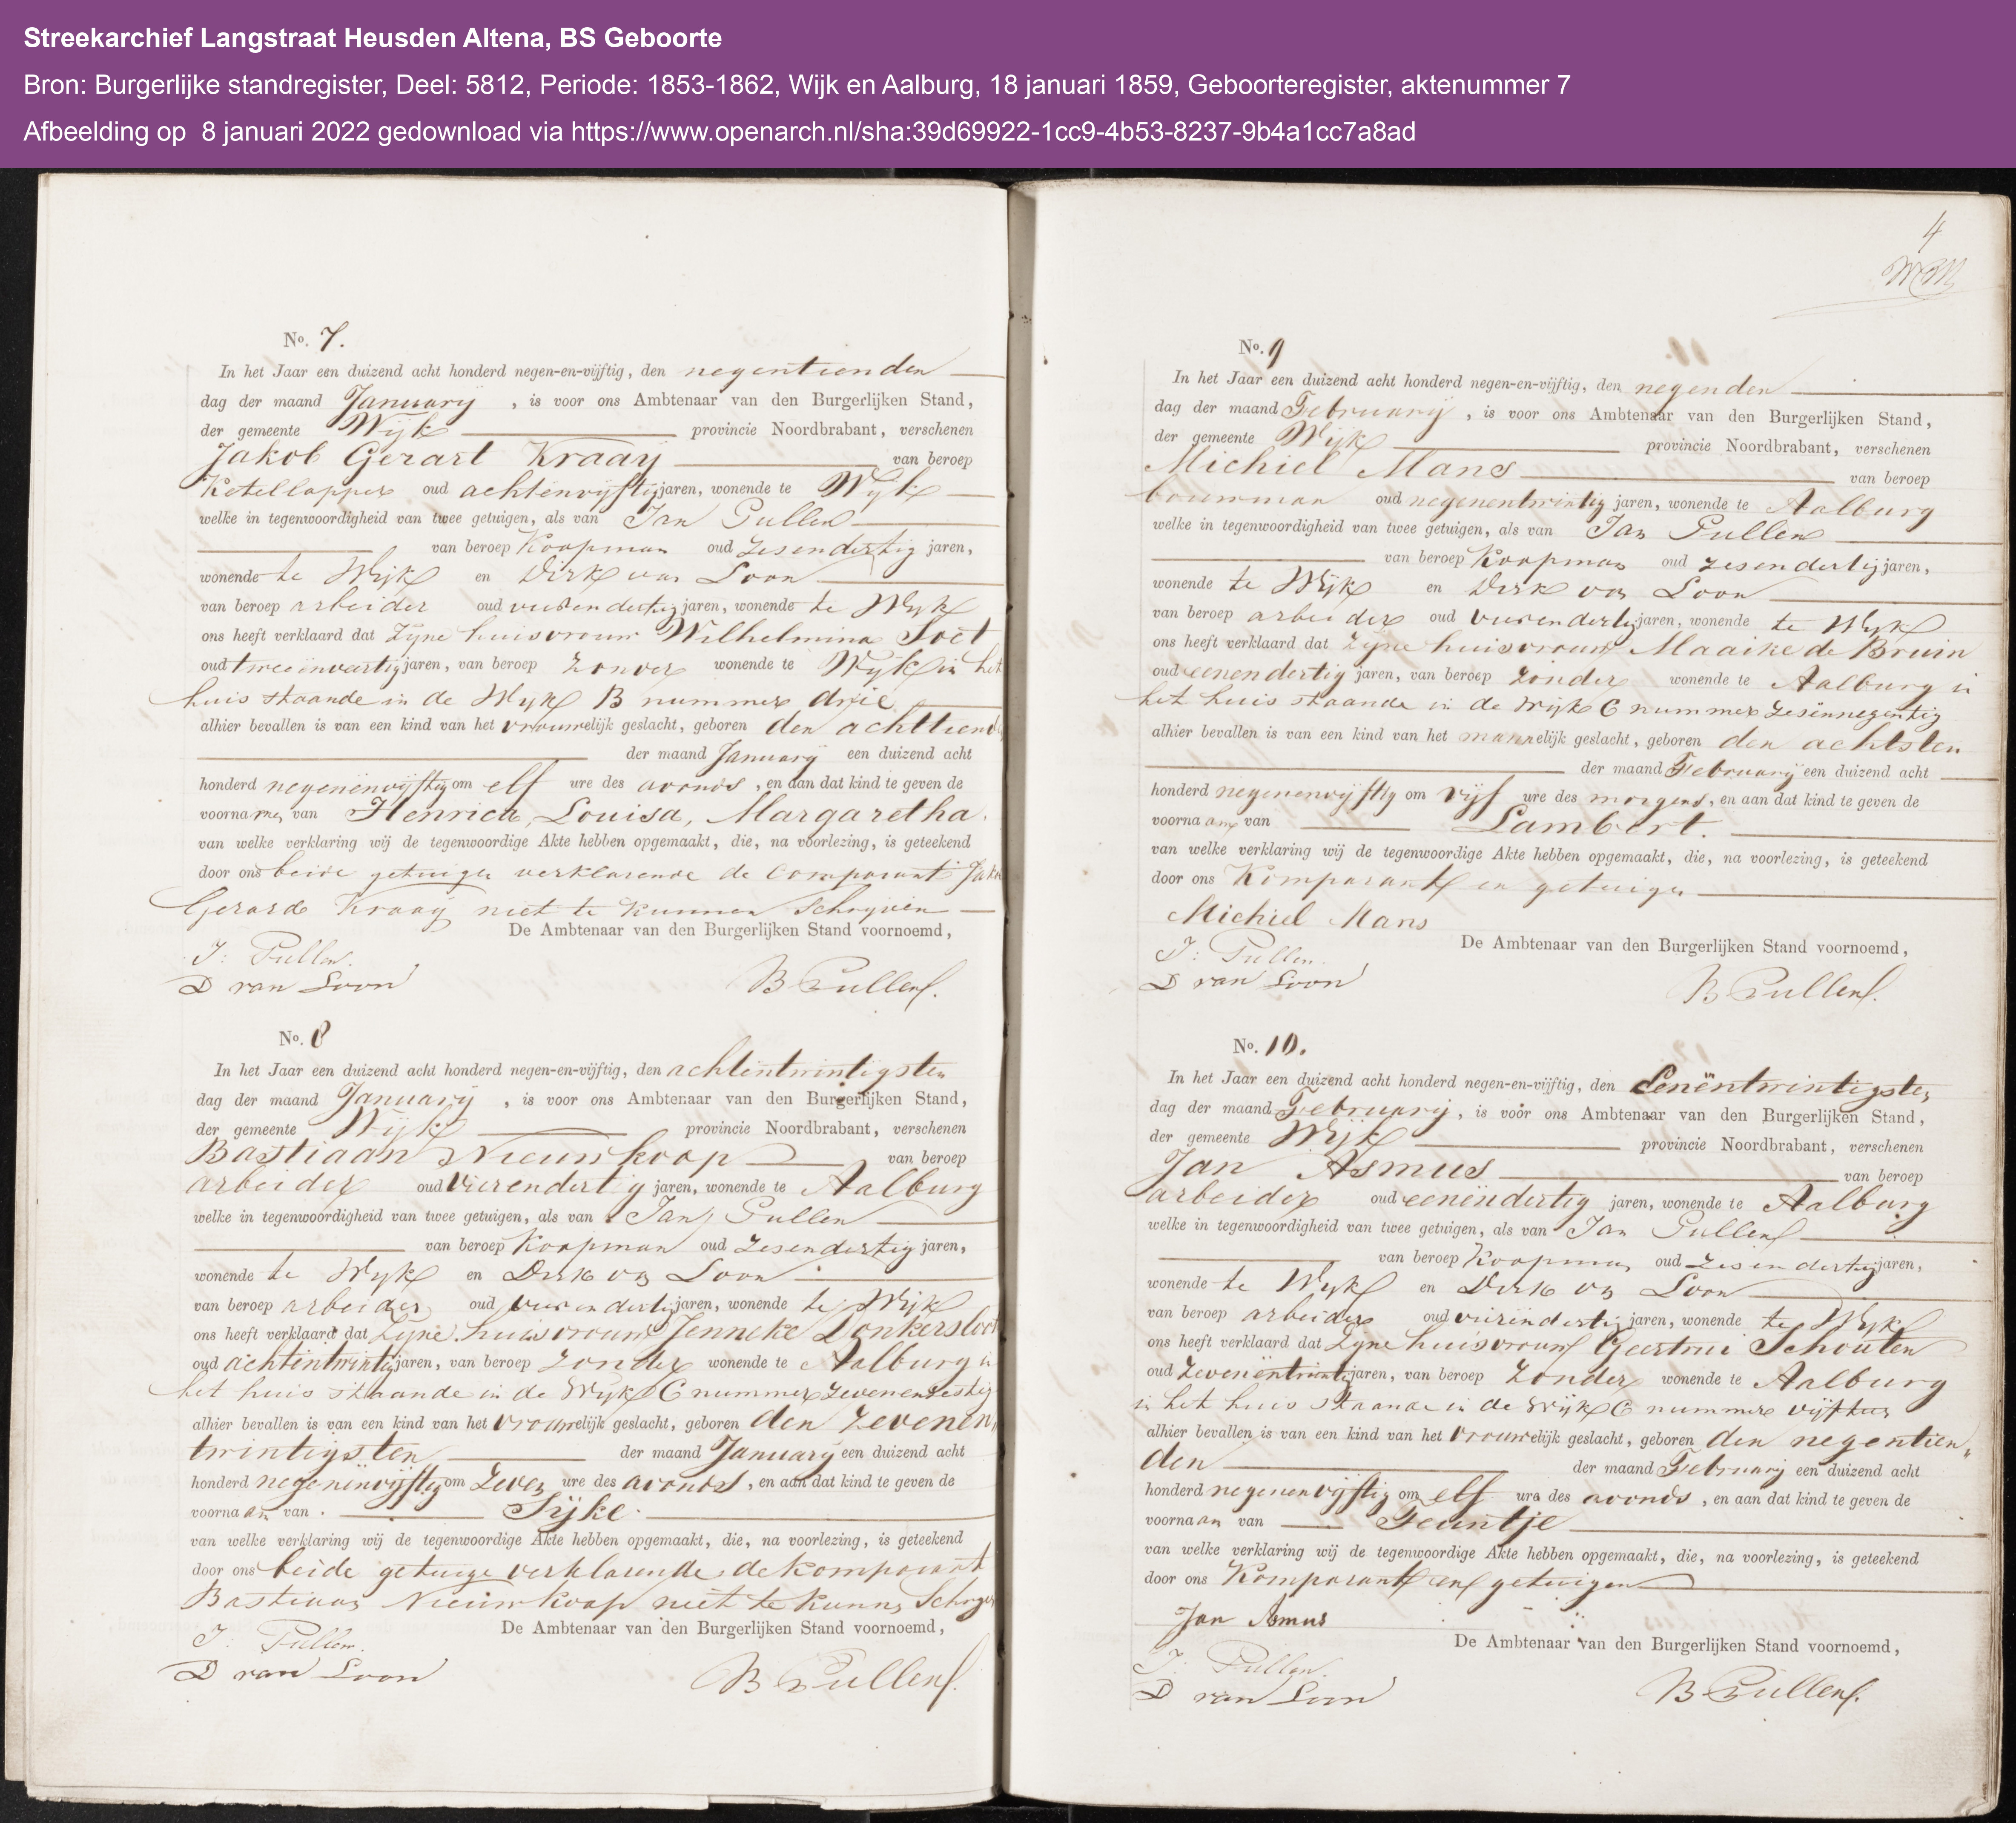 Streekarchief Langstraat Heusden Altena, BS Geboorte
Bron: Burgerlijke standregister, Deel: 5812, Periode: 1853-1862, Wijk en Aalburg, 18 januari 1859, Geboorteregister, aktenummer 7
Afbeelding op 8 januari 2022 gedownload via https://www.openarch.nl/sha:39d69922-1cc9-4b53-8237-9b4a1cc7a8ad
No. 7.
In het Jaar een duizend acht honderd negen-en-vijftig, den negentienden
dag der maand January , is voor ons Ambtenaar van den Burgerlijken Stand,
der gemeente Wijk provincie Noordbrabant, verschenen
Jakob Gerart Kraaij van beroep
Ketellapper oud achtenvijftig jaren, wonende te Wijk
welke in tegenwoordigheid van twee getuigen, als van Jan Pullen
van beroep Koopman oud zesendertig jaren,
wonende te Wijk en Dirk van Loon
van beroep arbeider oud vierendertig jaren, wonende te Wijk
ons heeft verklaard dat zijne huisvrouw Wilhelmina Soet
oud tweeënveertig jaren, van beroep zonder wonende te Wijk in het
huis staande in de Wijk B nummer drie
alhier bevallen is van een kind van het vrouwelijk geslacht, geboren den achttiende
der maand January een duizend acht
honderd negenenvijftig om elf ure des avonds , en aan dat kind te geven de
voornamen van Henrica, Louisa, Margaretha.
van welke verklaring wij de tegenwoordige Akte hebben opgemaakt, die, na voorlezing, is geteekend
door ons beide getuigen verklarende de comparant Jakob
Gerard Kraaij niet te kunnen Schrijven
De Ambtenaar van den Burgerlijken Stand voornoemd,
J: Pullen.
D van Loon
B Pullen.
No. 8
In het Jaar een duizend acht honderd negen-en-vijftig, den achtentwintigsten
dag der maand January , is voor ons Ambtenaar van den Burgerlijken Stand,
der gemeente Wijk provincie Noordbrabant, verschenen
Bastiaan Nieuwkoop van beroep
arbeider oud vierendertig jaren, wonende te Aalburg
welke in tegenwoordigheid van twee getuigen, als van Jan Pullen
van beroep Koopman oud zesendertig jaren,
wonende te Wijk en Dirk van Loon
van beroep arbeider oud vierendertig jaren, wonende te Wijk
ons heeft verklaard dat Zijne huisvrouw Jenneke Donkersloot
oud achtentwintig jaren, van beroep zonder wonende te Aalburg in
het huis staande in de Wijk C nummer zevenenzestig
alhier bevallen is van een kind van het vrouwelijk geslacht, geboren den zevenen
twintigsten der maand January een duizend acht
honderd negenenvijftig om zeven ure des avonds , en aan dat kind te geven de
voornaam van Sijke.
van welke verklaring wij de tegenwoordige Akte hebben opgemaakt, die, na voorlezing, is geteekend
door ons beide getuige verklarende de komparant
Bastiaan Nieuwkoop niet te kunnen Schrijven
De Ambtenaar van den Burgerlijken Stand voornoemd,
J: Pullen.
D van Loon
B Pullen.
4
No. 9
In het Jaar een duizend acht honderd negen-en-vijftig, den negenden
dag der maand February , is voor ons Ambtenaar van den Burgerlijken Stand,
der gemeente Wijk provincie Noordbrabant, verschenen
Michiel Mans van beroep
bouwman oud negenentwintig jaren, wonende te Aalburg
welke in tegenwoordigheid van twee getuigen, als van Jan Pullen
van beroep Koopman oud zesendertig jaren,
wonende te Wijk en Dirk van Loon
van beroep arbeider oud vierendertig jaren, wonende te Wijk
ons heeft verklaard dat zijne huisvrouw Maaike de Bruin
oud eenendertig jaren, van beroep zonder wonende te Aalburg in
het huis staande in de Wijk C nummer zesennegentig
alhier bevallen is van een kind van het mannelijk geslacht, geboren den achtsten
der maand February een duizend acht
honderd negenenvijftig om vijf ure des morgens , en aan dat kind te geven de
voornaam van Lambert.
van welke verklaring wij de tegenwoordige Akte hebben opgemaakt, die, na voorlezing, is geteekend
door ons Komparant en getuigen
Michiel Mans
De Ambtenaar van den Burgerlijken Stand voornoemd,
J: Pullen.
D van Loon
B Pullen.
No. 10.
In het Jaar een duizend acht honderd negen-en-vijftig, den Eenëntwintigsten
dag der maand February , is voor ons Ambtenaar van den Burgerlijken Stand,
der gemeente Wijk provincie Noordbrabant, verschenen
Jan Asmus van beroep
arbeider oud eenëndertig jaren, wonende te Aalburg
welke in tegenwoordigheid van twee getuigen, als van Jan Pullen
van beroep Koopman oud zesendertig jaren,
wonende te Wijk en Dirk van Loon
van beroep arbeider oud vierëndertig jaren, wonende te Wijk
ons heeft verklaard dat Zijne huisvrouw Geertrui Schouten
oud zevenëntwintig jaren, van beroep zonder wonende te Aalburg
in het huis staande in de Wijk C nummer vijftien
alhier bevallen is van een kind van het vrouwelijk geslacht, geboren den negentien
den der maand February een duizend acht
honderd negenenvijftig om elf ure des avonds , en aan dat kind te geven de
voornaam van Teuntje
van welke verklaring wij de tegenwoordige Akte hebben opgemaakt, die, na voorlezing, is geteekend
door ons Komparant en getuigen
Jan Asmus
De Ambtenaar van den Burgerlijken Stand voornoemd,
J: Pullen.
D van Loon
B Pullen.